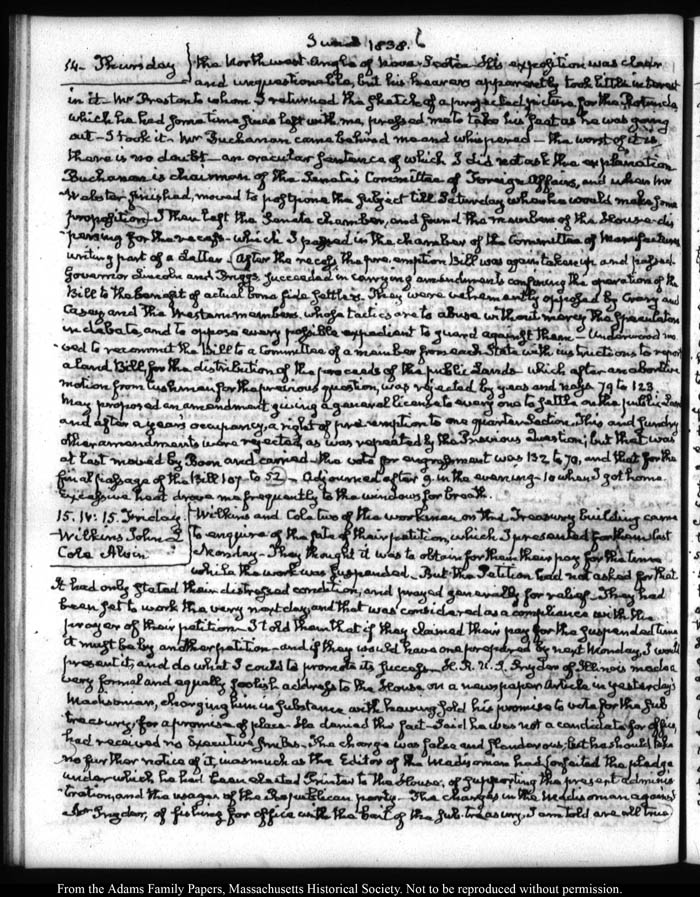 June 1838.
14. Thursday the North west Angle of Nova Scotia. His exposition was clear
and unquestionable, but his hearers apparently took little interest
in it. Mr Preston to whom I returned the sketch of a projected picture for the Rotunda
which he had some time since left with me, pressed me to take his seat as he was going
out. I took it. Mr Buchanan came behind me and whispered — the worst of it is
there is no doubt — an oracular sentence of which I did not ask the explanation
Buchanan is chairman of the Senate's Committee of Foreign Affairs, and when Mr
Webster finished, moved to postpone the subject till Saturday when he would make some
proposition. I then left the Senate chamber, and found the members of the House dis-
persing for the recess which I passed in the chamber of the Committee of Manufactures
writing part of a Letter. After the recess the pre-emption Bill was again taken up and passed.
Governor Lincoln and Briggs, succeeded in carrying amendments confining the operation of the
Bill to the benefit of actual bona fide settlers. They were vehemently opposed by Crary and
Casey and the Western members, whose tactics are to abuse without mercy the Speculators
in debate, and to oppose every possible expedient to guard against them — Underwood mo-
ved to recommit the Bill to a Committee of a member from each State with instructions to report
a land Bill for the distribution of the proceeds of the public Lands — which after an abortive
motion from Cushman for the previous question, was rejected by yeas and nays 79 to 123
May proposed an amendment giving a general license to every one to settle on the public Land
and after a years occupancy, a right of pre-emption to one quarter Section. This and sundry
other amendments were rejected, as was repeated by the Previous Question; but that was
at last moved by Boon and carried — the vote for engrossment was 132 to 70, and that for the
final passage of the Bill 107 to 52 — Adjourned after 9 in the evening — 10 when I got home.
Excessive heat drove me frequently to the windows for breath.
15. IV: 15. Friday. Wilkins and Cole two of the workmen on the Treasury building came
Wilkins John L to enquire of the fate of their petition, which I presented for them last
Cole Alvin Monday. They thought it was to obtain for them their pay for the time
while the work was suspended. But the Petition had not asked for that
It had only stated their distressed condition, and prayed generally for relief. They had
been set to work the very next day, and that was considered as a compliance with the
prayer of their petition. I told them that if they claimed their pay for the suspended time
it must be by another petition — and if they would have one prepared by next Monday, I would
present it, and do what I could to promote its success. H. R. U. S. Snyder of Illinois made a
very formal and equally foolish address to the House on a newspaper Article in yesterday's
Madisonian, charging him in substance with having sold his promise to vote for the Sub
treasury, for a promise of place. He denied the fact — Said he was not a candidate for office,
had received no Executive smiles. The charge was false and slanderous, but he should take
no further notice of it, inasmuch as the Editor of the Madisonian had forfeited the pledge
under which he had been elected Printer to the House, of supporting the present adminis
tration, and the usages of the Republican party. The charges in the Madisonian against
Mr Snyder, of fishing for office with the bait of the Sub-treasury, I am told are all true
From the Adams Family Papers, Massachusetts Historical Society. Not to be reproduced without permission.